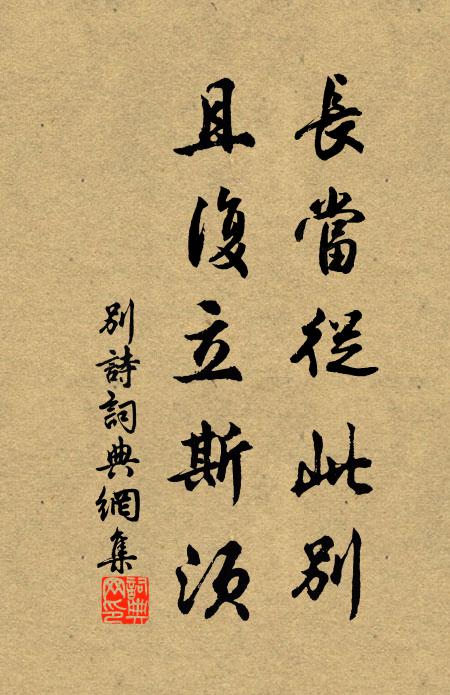 長當從此別
且復立斯須
別詩詞典網集
詞典網印